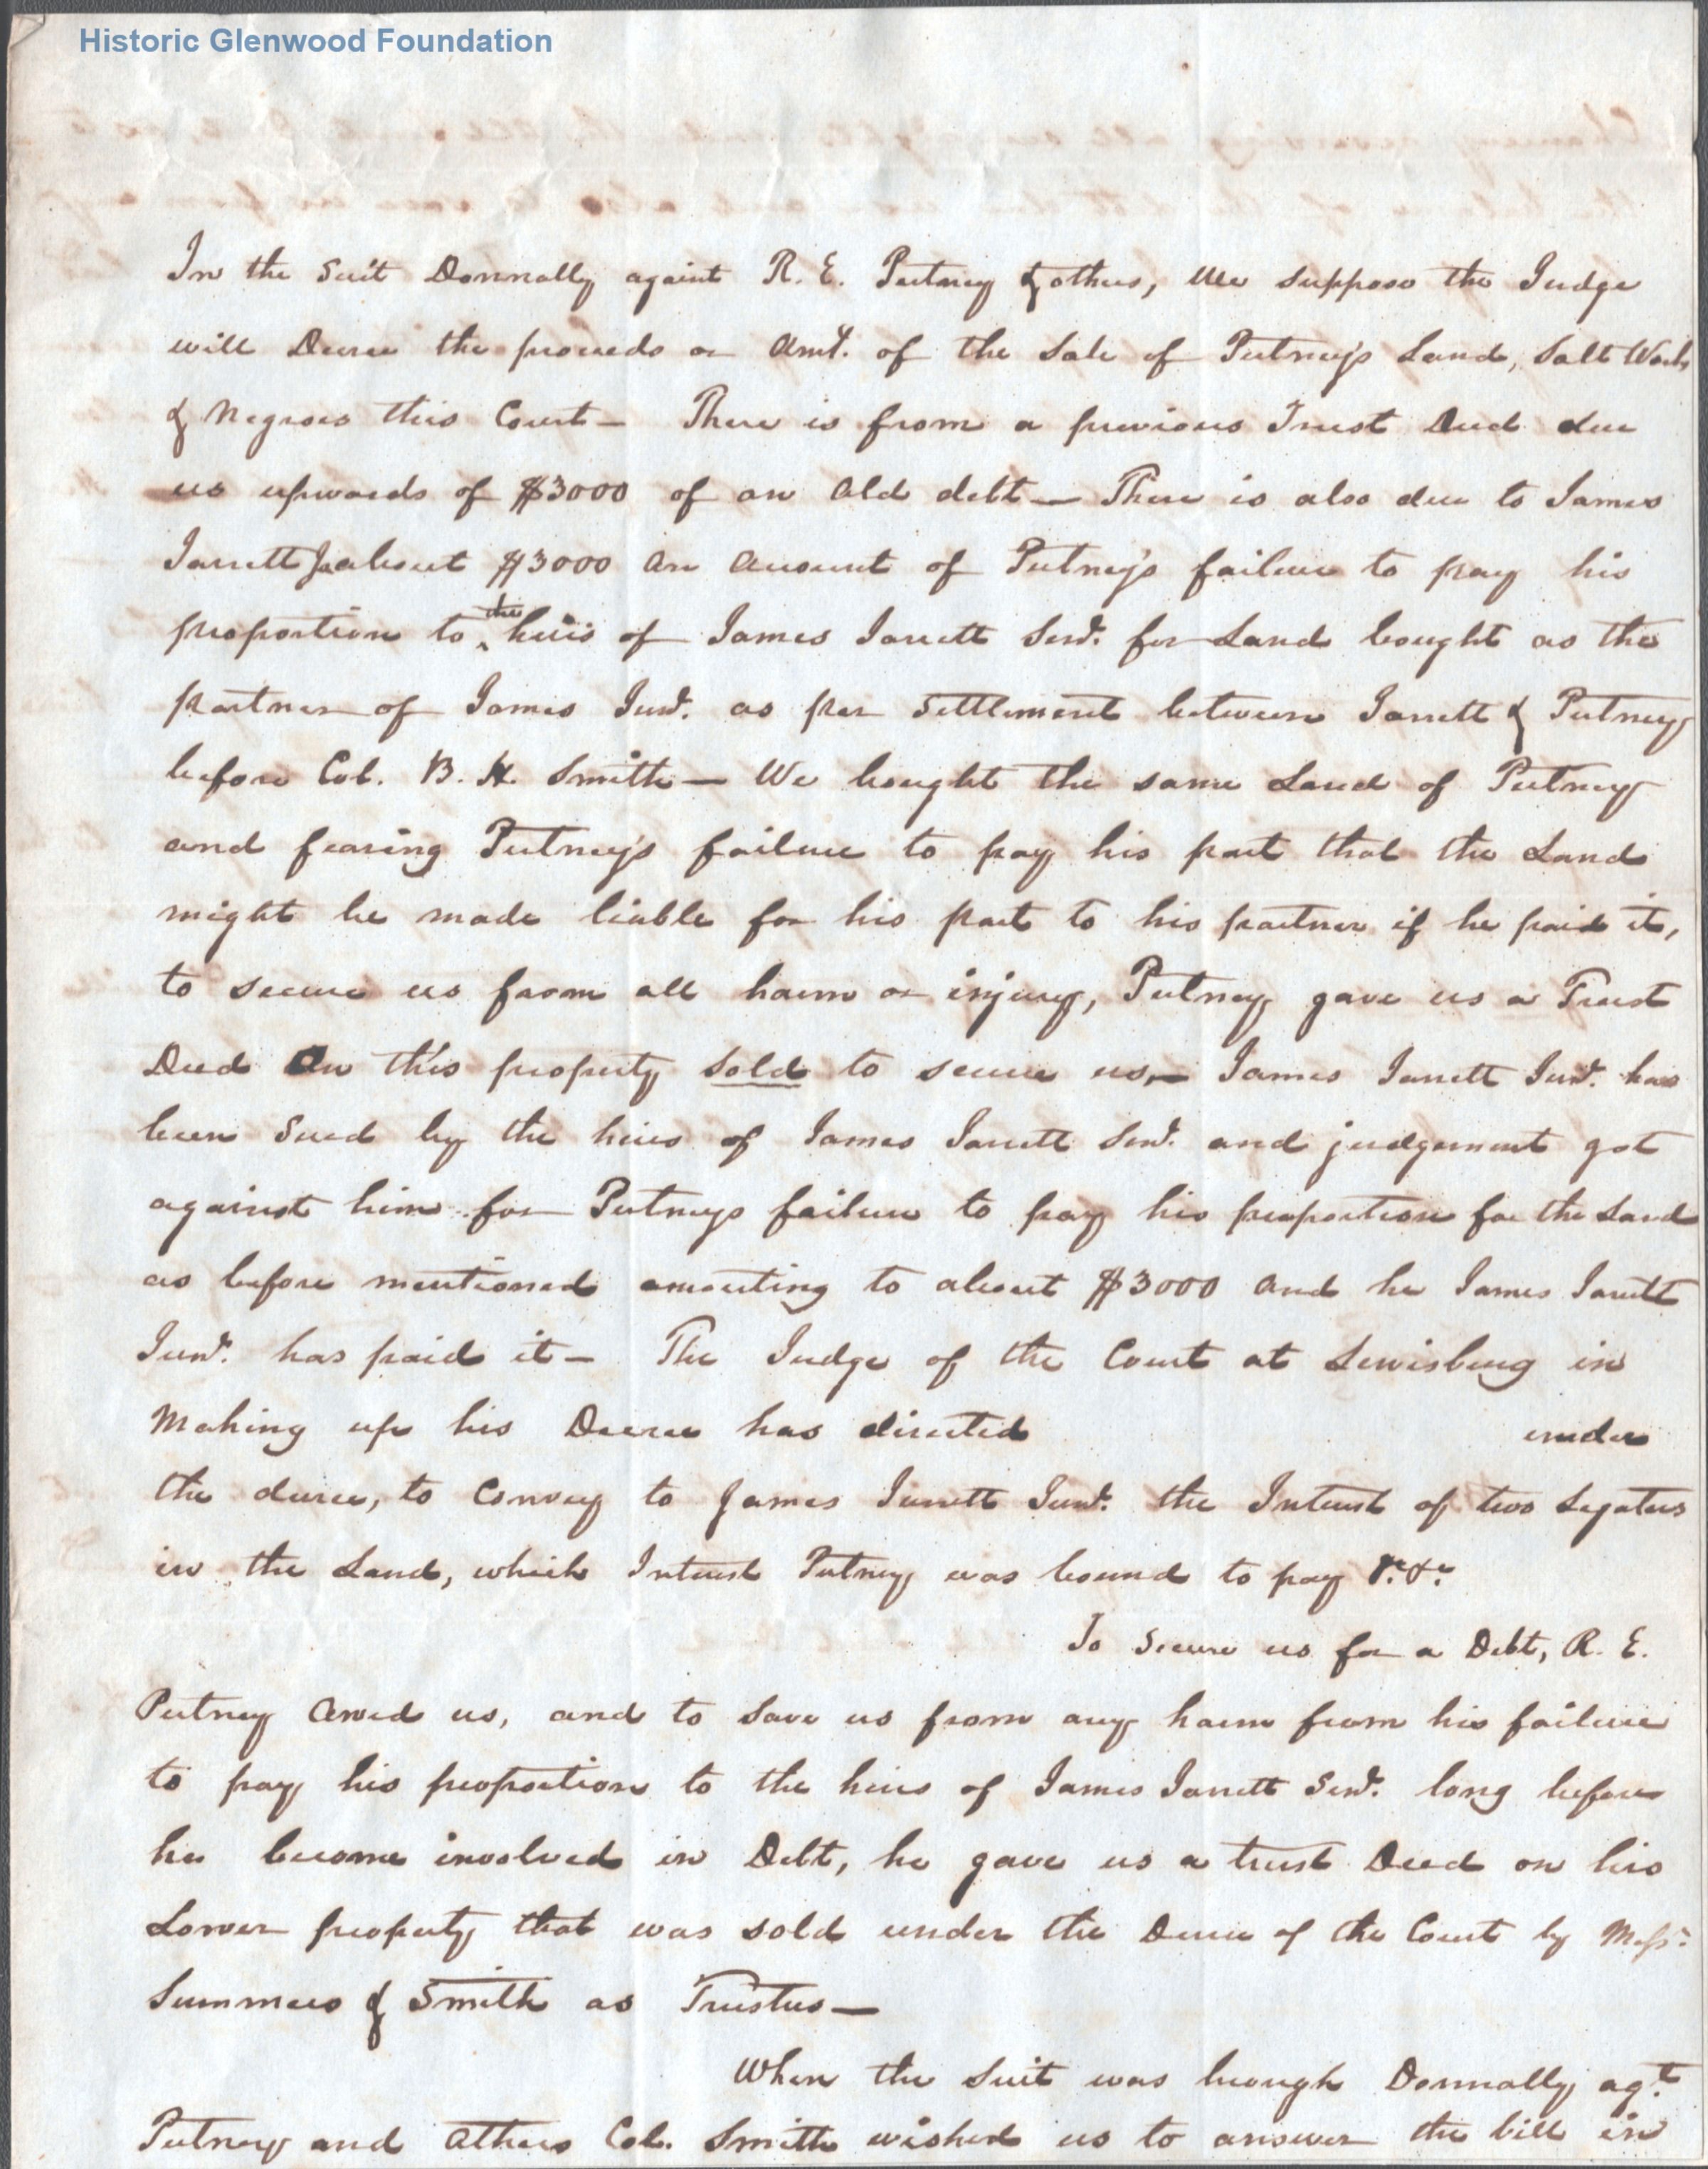 Historic Glenwood Foundation
In the Suit Donnally againt R. E. Putney & others, We suppose the Judge
will Decree the proceeds or Amt. of the Sale of Putney's Land, Salt Works
& Negroes this Court — There is from a previous Trust Deed due
us upwards of $3000 of an Old debt — There is also due to James
Jarrett Jr about $3000 on account of Putney's failure to pay his
proportion to the heirs of James Jarrett Senr. for Land bought as the
partner of James Junr. as per Settlement between Jarrett & Putney
before Col. B. H. Smith — We bought the same Land of Putney
and fearing Putney's failure to pay his part that the Land
might be made liable for his part to his partner if he paid it,
to secure us from all harm or injury, Putney gave us a Trust
Deed On this property sold to secure us, — James Jarrett Junr. has
been Sued by the heirs of James Jarrett Senr. and judgement got
against him for Putneys failure to pay his proportion for the Land
as before mentioned amouting to about $3000 and he James Jarrett
Junr. has paid it — The Judge of the Court at Lewisburg in
Making up his Decree has directed under
the decree, to Convey to James Jarrett Junr. the Interest of two Legatees
in the Land, which Interest Putney was bound to pay
To Secure us for a Debt, R. E.
Putney Owed us, and to Save us from any harm from his failure
to pay his proportion to the heirs of James Jarrett Senr. long before
he become involved in Debt, he gave us a trust Deed on his
Lower property that was sold under the Decree of the Court by Messr.
Summers & Smith as Trustees —
When the Suit was brough Donnally agt.
Putney and Others Col. Smith wished us to answer the bill in